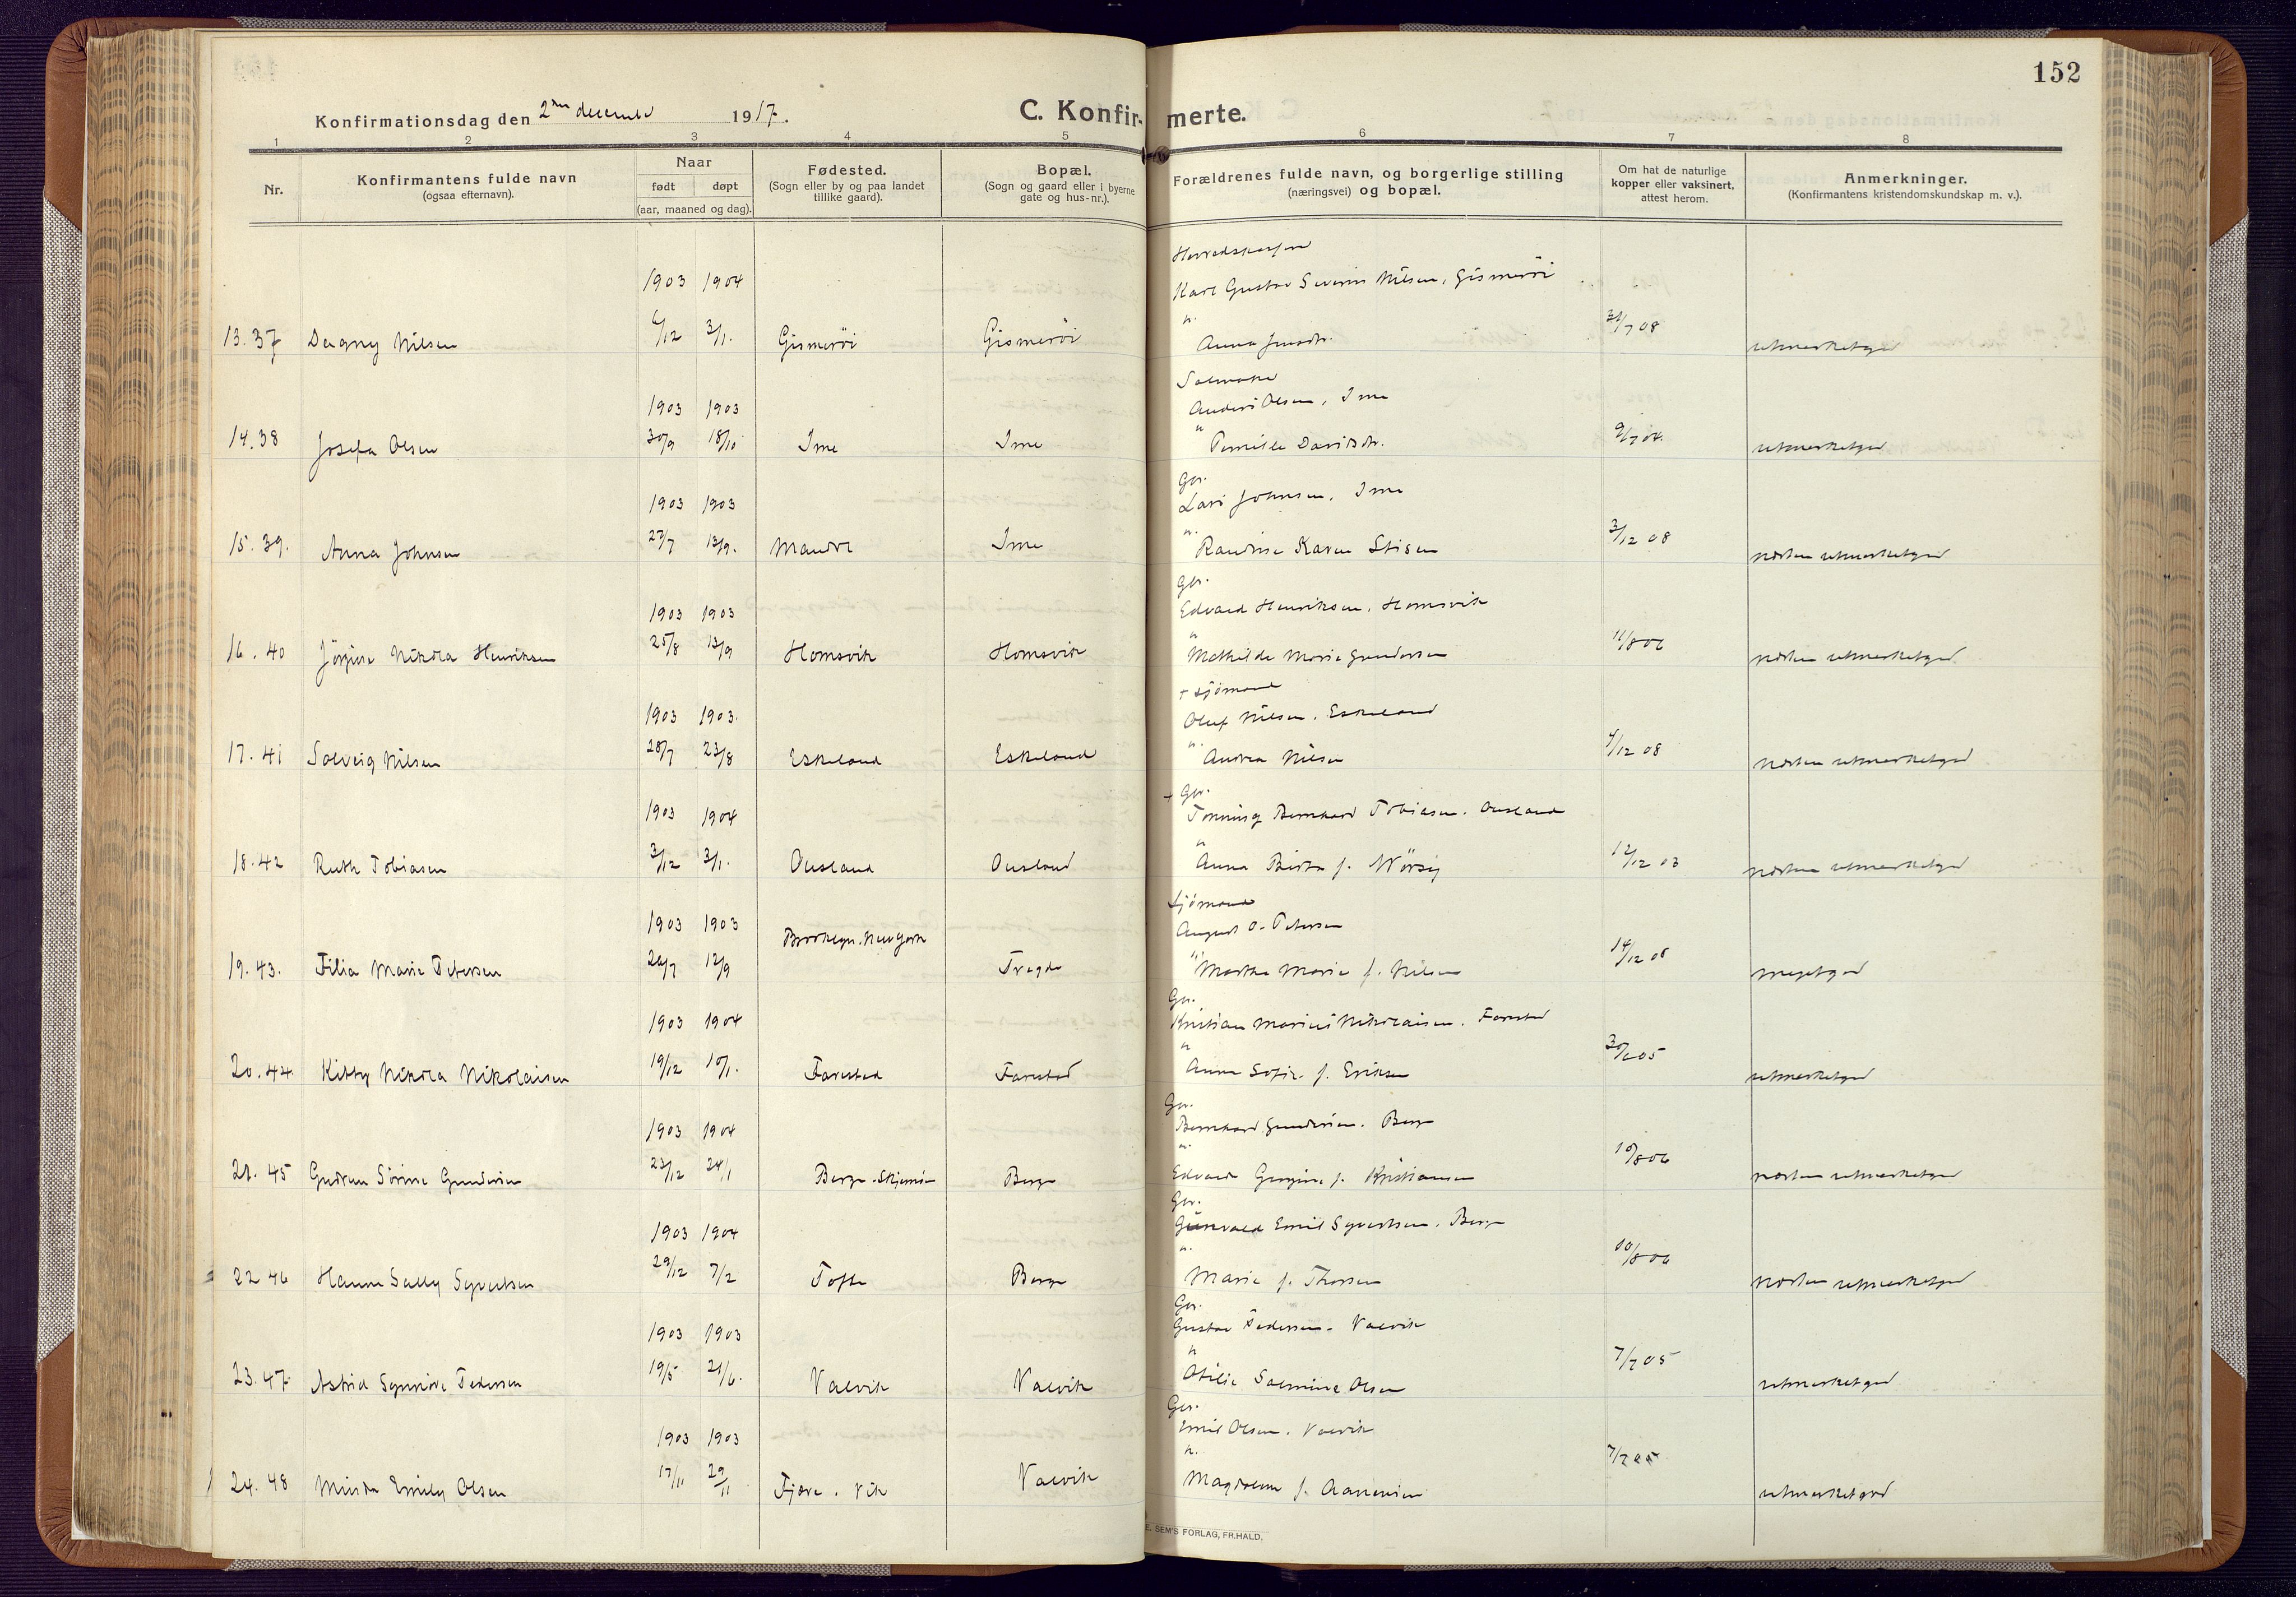 152
Konfirmationsdag den 2den december 1917.
C. Konfirmerte.
1 2 3 4 5 6 7 8
Nr.
Konfirmantens fulde navn
(ogsaa efternavn).
Naar
født døpt
(aar, maaned og dag).
Fødested.
(Sogn eller by og paa landet
tillike gaard).
Bopæl.
(Sogn og gaard eller i byerne
gate og hus-nr.).
Forældrenes fulde navn, og borgerlige stilling
(næringsvei) og bopæl.
Om hat de naturlige
kopper eller vaksinert,
attest herom.
Anmerkninger.
(Konfirmantens kristendomskundskap m. v.).
1903 1904 Karl Gustav Severin Nilsen, Gismerøi
13. 37 Dagny Nilsen 6/12 3/1. Gismerøi Gismerøi " Anna 7 08 utmerketgod
1903 1903 Anders Olsen, Ime
14. 38 Josefa Olsen 30/9 18/10 Ime Ime " Pernille Davidsdtr. 9/7 04. utmerketgod
Gbr.
1903 1903 Lars Johnsen, Ime
15. 39. Anna Johnsen 27/7 13/9. Mandal Ime " Randine Karen 3/12 08 næsten utmerketgod
Gbr.
1903 1903 Edvard Henriksen, Homsvik
16. 40 Jörgine Nikola Henriksen 25/8 13/9 Homsvik Homsvik " Mathilde Marie Gundersen 11/8 06 næsten utmerketgod
+ Sjömand
1903 1903. Oluf Nilsen. Eskeland
17. 41 Solveig Nilsen 28/7 23/8 Eskeland Eskeland " Andrea Nilsen 4/12 08 næsten utmerketgod
+ Gbr.
1903 1904 Tönning Bernhard Tobiasen. Ousland
18. 42 Ruth Tobiasen 3/12 3/1. Ousland Ousland " Anna f. 12/12 03 næsten utmerketgod
Sjömand
1903 1903 Brooklyn. New York August O. Petersen
19. 43. Filia Marie Petersen 26/7 12/9 Tregde " Marthe Marie f. Nilsen 14/12 08 megetgod
Gbr.
1903 1904 Kristian Marius Nikolaisen. Farestad
20. 44. Kitty Nikola Nikolaisen 19/12 10/1. Farestad Farestad " Anne Sofie f. Eriksen 30/6 05 utmerketgod
Gbr.
1903 1904 Bernhard Gundersen. Berge
21. 45 Gudrun Sörine Gundersen 23/12 24/1 Berge. Skjernøi Berge " Edvarda Georgine f. Kristiansen 10/8 06 næsten utmerketgod
Gbr.
1903 1904 Gunvald Emil Syvertsen. Berge
22 46 Hanna Sally Syvertsen 29/12 7/2 Tofte Berge " Marie f. Thorsen 10/8 06 næsten utmerketgod
Gbr.
1903 1903 Gustav Pedersen. Valvik
23. 47. Astrid Synnöve Pedersen 19/5 21/6. Valvik Valvik " Otilie Salmine Olsen 7/7 05 utmerketgod
Gbr.
1903 1903 Emil Olsen. Valvik
24. 48 Minda Emily Olsen 17/11 29/11 Fjære. Vik Valvik " Magdalene f. Aanensen 7/7 05 utmerketgod
E. SEM'S FORLAG, FR.HALD.